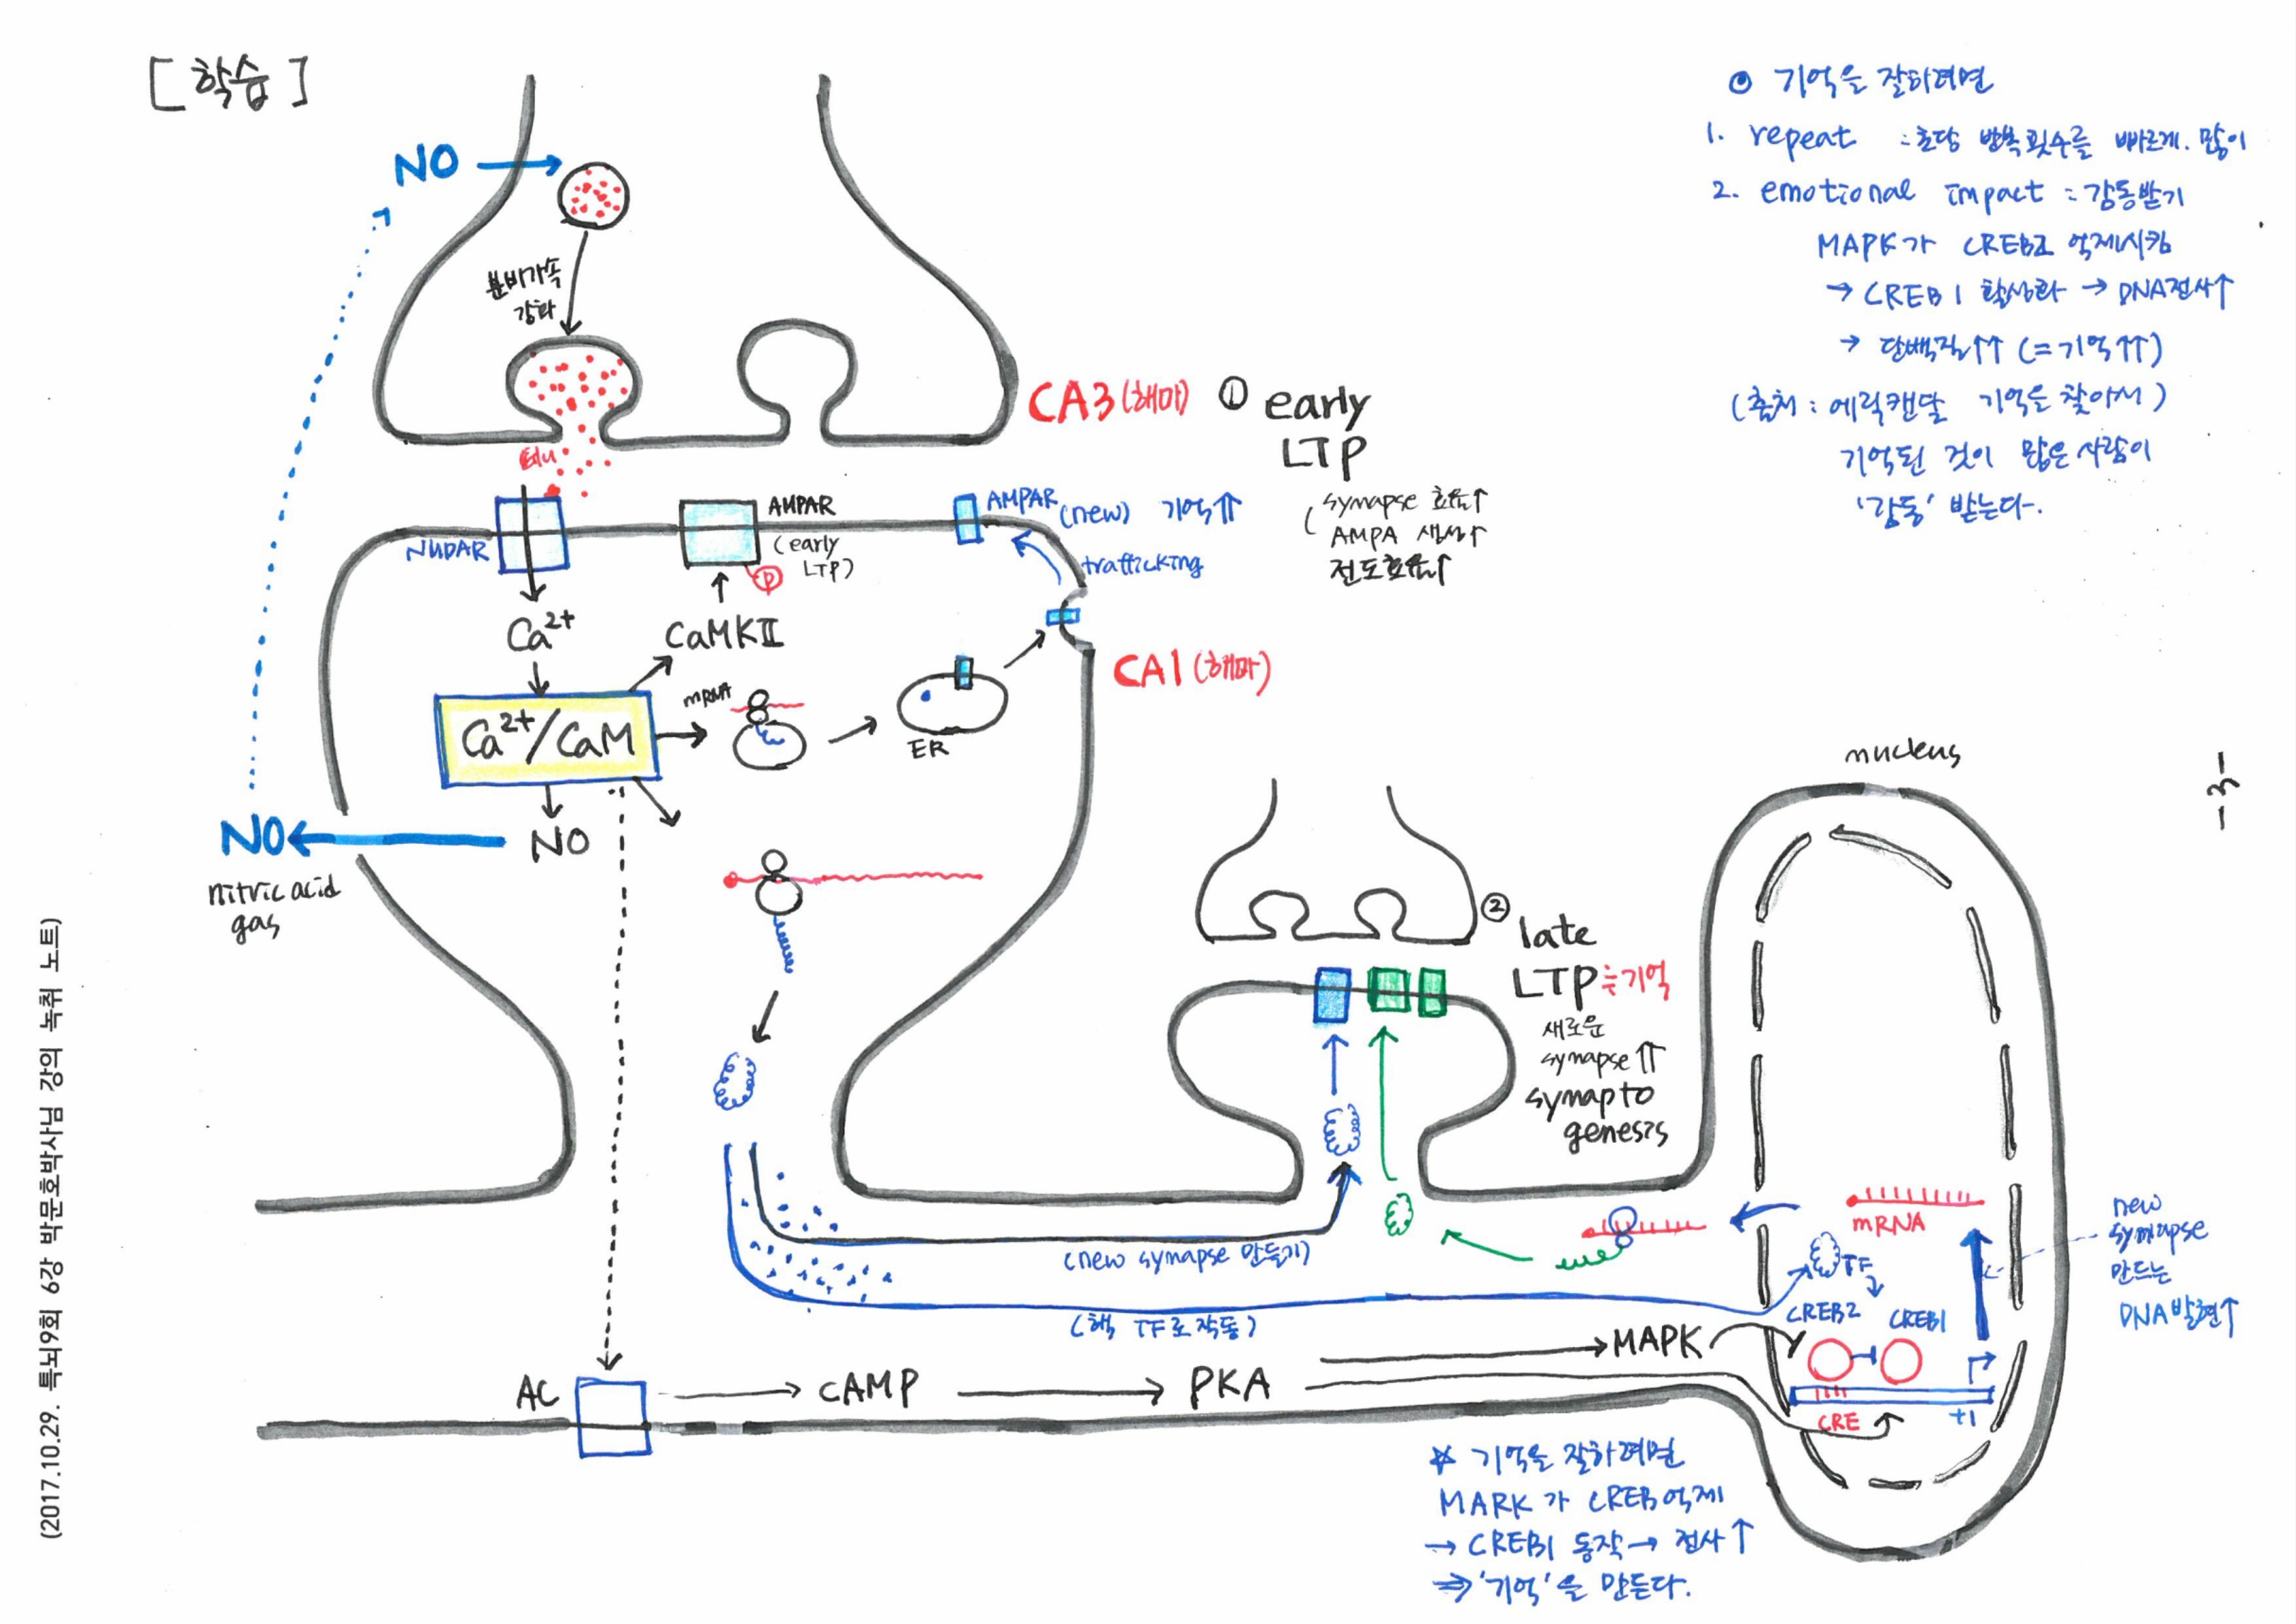 [학습]
NO
분비가속
강화
Glu
CA3 (해마)
① early
LTP
( synapse 효율↑
AMPA 생성↑
전도효율↑
NMDAR
AMPAR
(early
LTP)
P
AMPAR (new) 기억⇈
trafficking
Ca2+
CaMKII
CA1 (해마)
Ca2+/CaM
mRNA
ER
NO
NO
nitric acid
gas
◎ 기억을 잘하려면
1. repeat : 초당 반복횟수를 빠르게. 많이
2. emotional impact : 감동받기
MAPK가 CREB2 억제시킴
→ CREB1 활성화 → DNA전사↑
→ 단백질⇈ (=기억⇈)
(출처 : 에릭캔달 기억을 찾아서)
기억된 것이 많은 사람이
'감동' 받는다.
② late
LTP ≒기억
새로운
synapse⇈
synapto
genesis
nucleus
-3-
(new synapse 만들기)
(핵 TF로 작동)
mRNA
TF
CREB2
CREB1
CRE
+1
new
synapse
만드는
DNA발현↑
AC
cAMP
PKA
MAPK
☆ 기억을 잘하려면
MARK가 CREB억제
→ CREB1 동작 → 전사↑
⇒ '기억'을 만든다.
(2017.10.29. 특뇌9회 6강 박문호박사님 강의 녹취 노트)